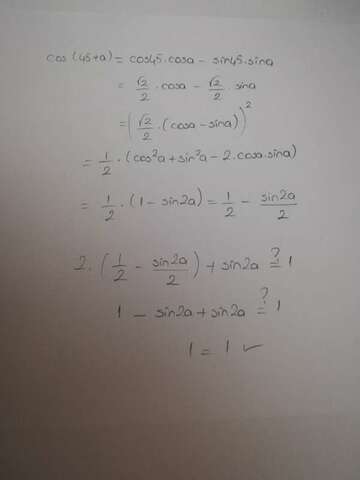 cos (45+a) = cos45.cosa - sin45.sina
= √2/2 . cosa - √2/2 . sina
= (√2/2 . (cosa - sina))²
= 1/2 . (cos²a + sin²a - 2.cosa.sina)
= 1/2 . (1 - sin2a) = 1/2 - sin2a/2
2. (1/2 - sin2a/2) + sin2a ?= 1
1 - sin2a + sin2a ?= 1
1 = 1 ✓